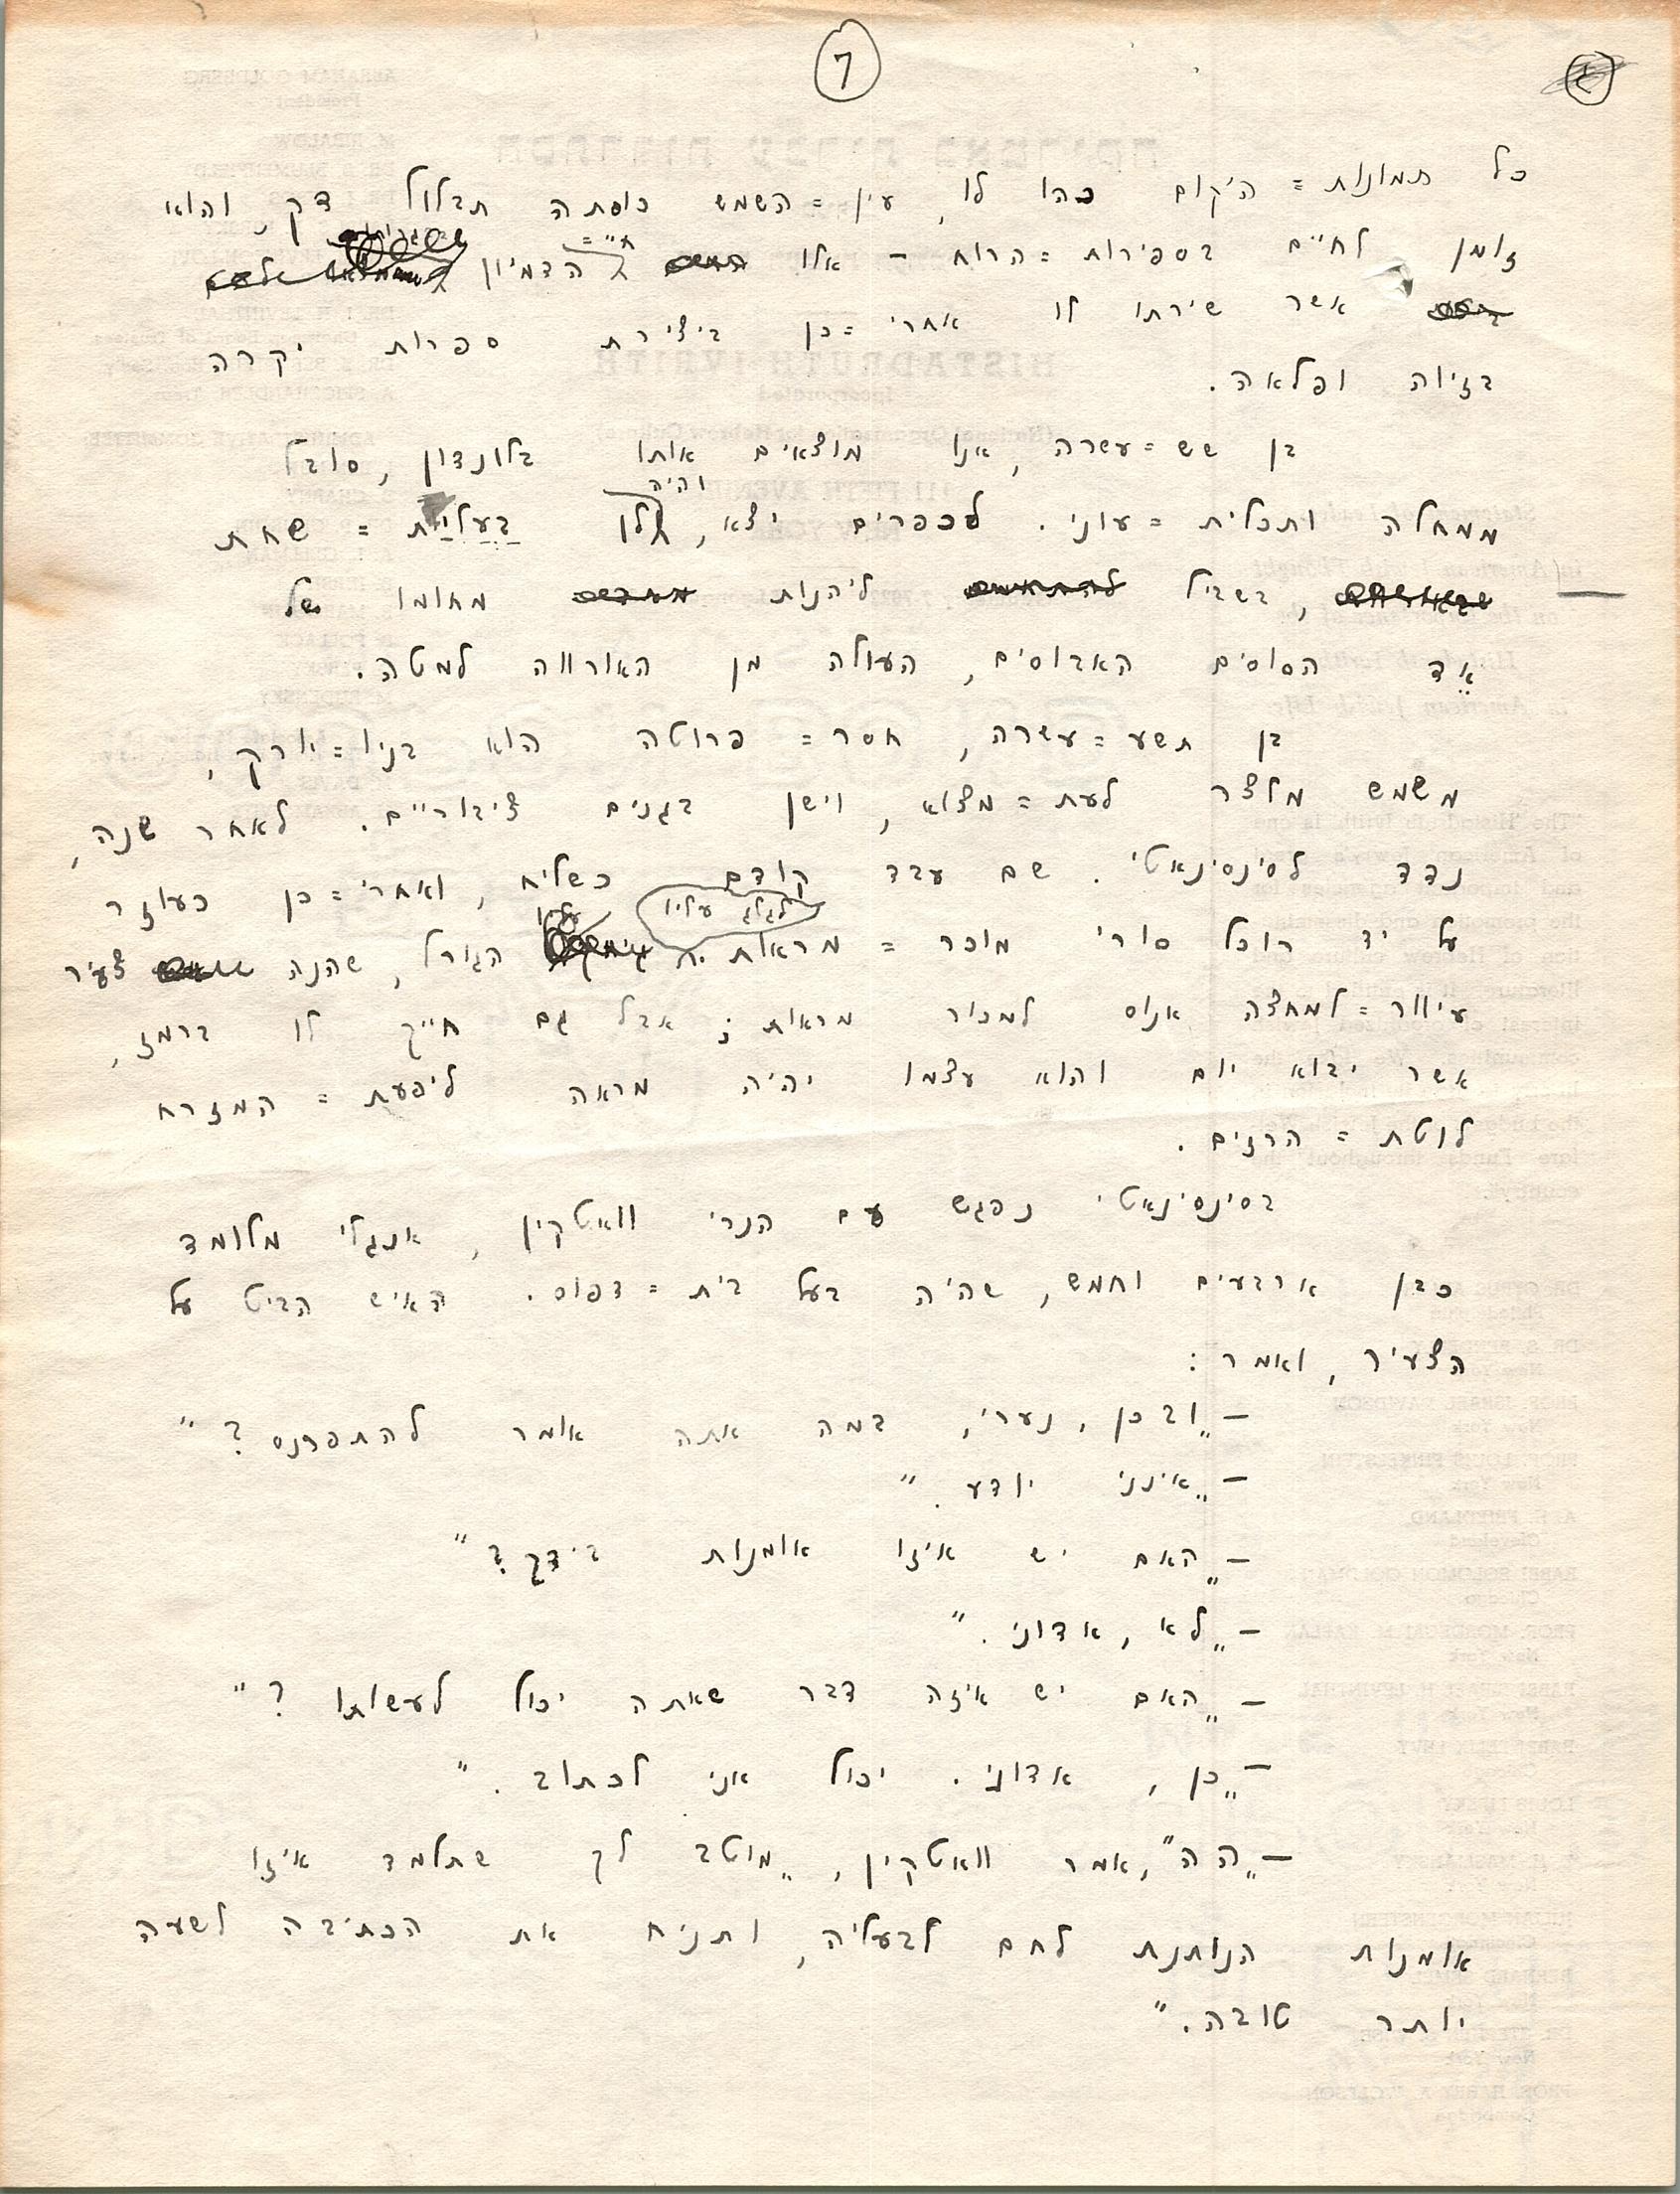 7
כל תמונות = היקום כהו לו, עין = השמש כוסתה תבלול דק, והוא
זומן לחיים בספירות = הרוח – אלו חיי = הדמיון
אשר שירתו לו אחרי = כן ביצירת ספרות יקרה
בזיוה ופלאה.
בן שש = עשרה, אנו מוצאים אותו בלונדון, סובל
ממחלה ותכלית = עוני. לכפרים יצא, והיה לן בעליית = שחת
, בשביל ליהנות מחומו של
אֵד הסוסים האבוסים, העולה מן האורווה למטה.
בן תשע = עשרה, חסר = פרוטה הוא בניו = יורק,
משמש מלצר לעת = מצוא, וישן בגנים ציבוריים. לאחר שנה,
נדד לסינסינאטי. שם עבד קודם כשליח, ואחרי = כן כעוזר
על יד רוכל סורי מוכר = מראות. לגלג עליו הגורל, שהנה צעיר
עיוור = למחצה אנוס למכור מראות; אבל גם חייך לו ברמז,
אשר יבוא יום והוא עצמו יהיה מראה ליפעת = המזרח
לוטת = הרזים.
בסינסינאטי נפגש עם הנרי וואטקין, אנגלי מלומד
כבן ארבעים וחמש, שהיה בעל בית = דפוס. האיש הביט על
הצעיר, ואמר:
– „ובכן, נערי, במה אתה אומר להתפרנס?"
– „אינני יודע."
– „האם יש איזו אומנות בידך?"
– „לא, אדוני."
– „האם יש איזה דבר שאתה יכול לעשותו?"
– „כן, אדוני. יכול אני לכתוב."
– „הה", אמר וואטקין, „מוטב לך שתלמד איזו
אומנות הנותנת לחם לבעליה, ותניח את הכתיבה לשעה
יותר טובה."